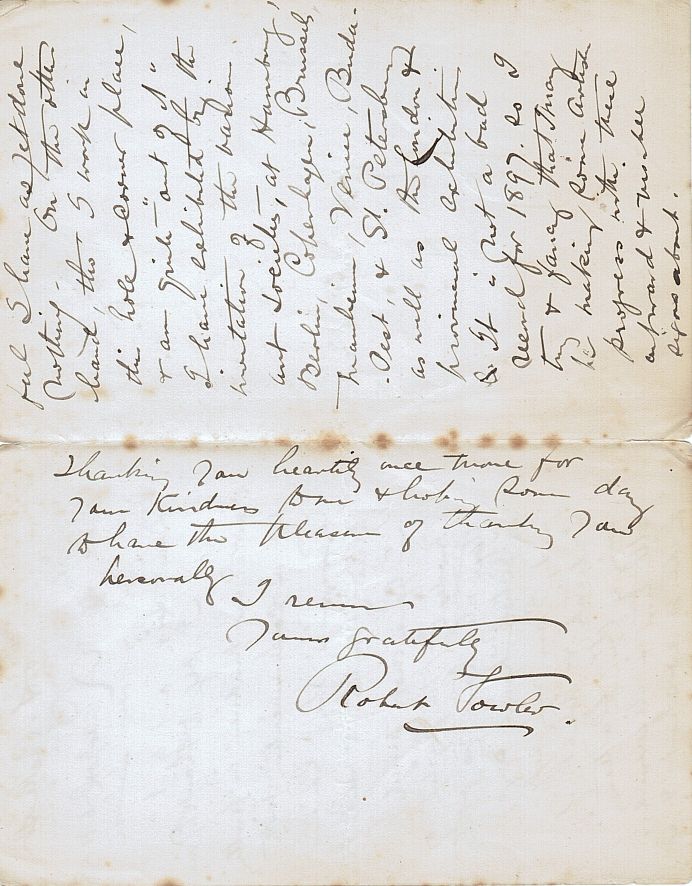 feel I have as yet done
nothing – On the other
hand, tho' I work in
this hole & corner place,
& am quite "out of it"
I have exhibited by the
invitation of the various
art societies – at Hamburg,
Berlin, Copenhagen, Brussels,
Mannheim, Venice, Buda-
-Pest, & St. Petersburg
as well as the London &
provincial exhibitions
& It is not a bad
record for 1897. so I
try & fancy that I may
be making some artistic
progress with these
outward &
signs about.
Thanking you heartily once more for
your Kindness to me & hoping some day
to have the pleasure of thanking you
personally
I remain
Yours gratefully
Robert Fowler.